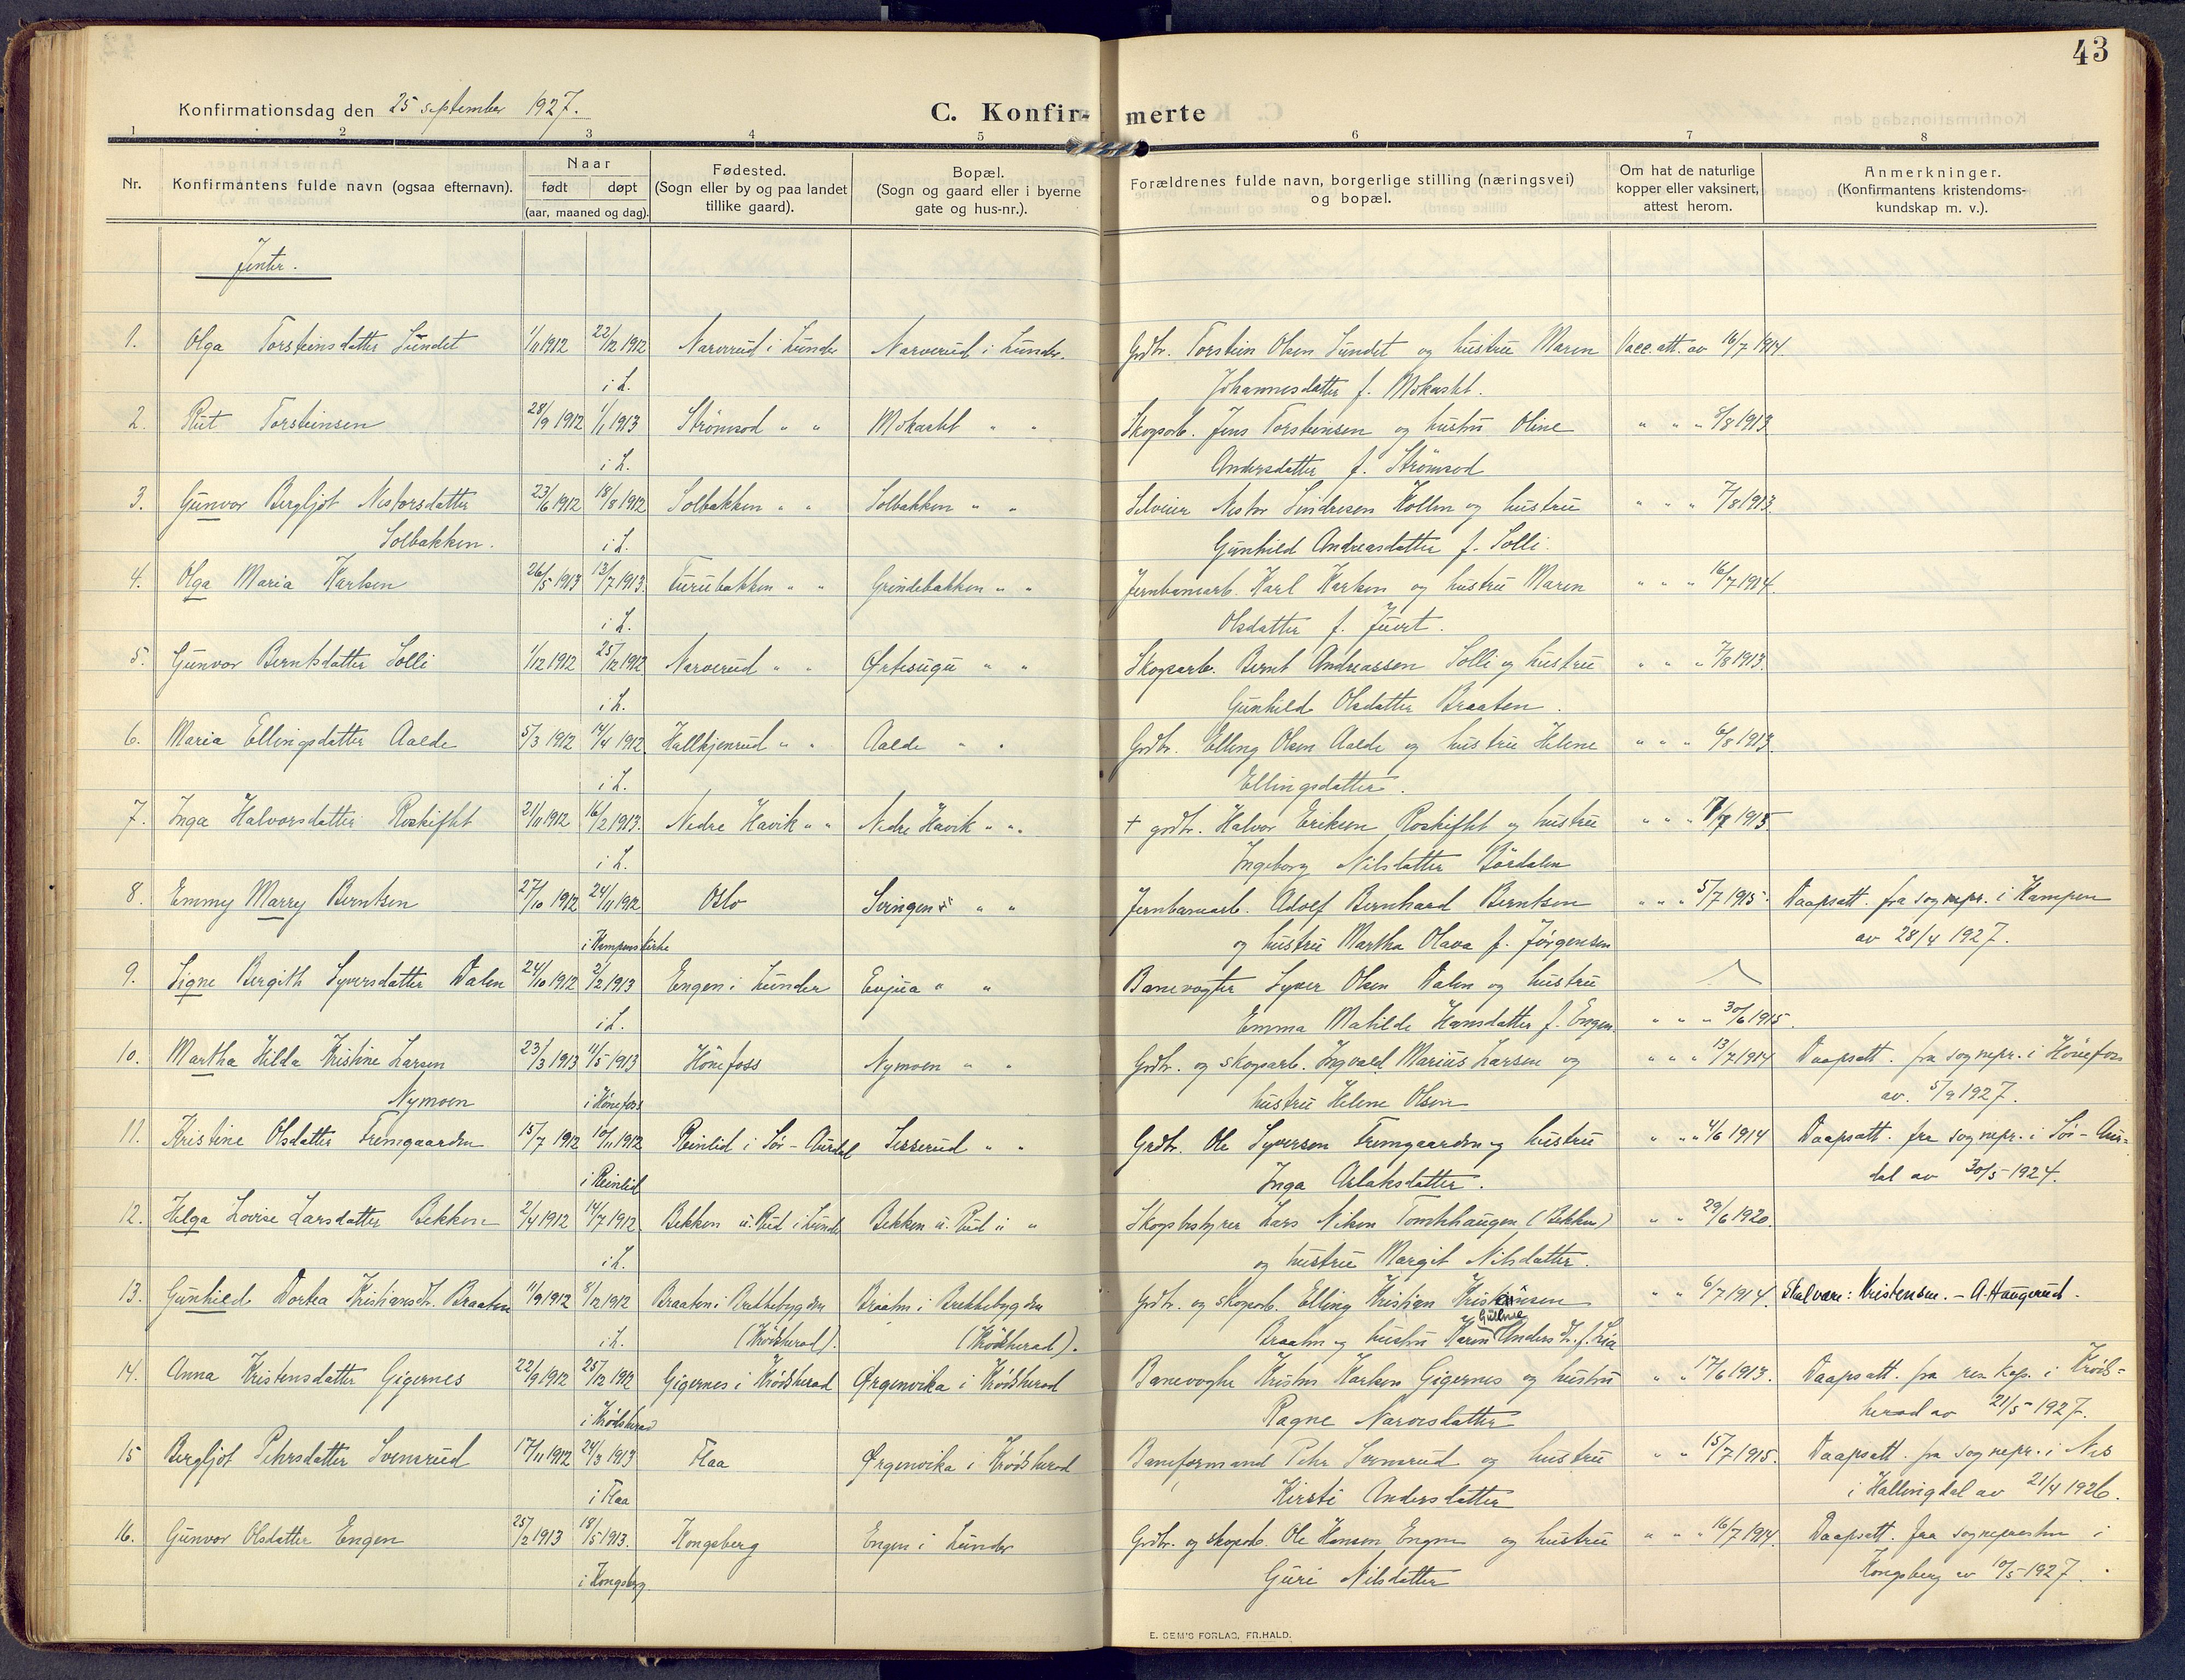 43
Konfirmationsdag den 25 september 1927.
C. Konfir- merte
1 2 3 4 5 6 7 8
Nr. Konfirmantens fulde navn (ogsaa efternavn). Naar født døpt (aar, maaned og dag). Fødested. (Sogn eller by og paa landet tillike gaard). Bopæl. (Sogn og gaard eller i byerne gate og hus-nr.). Forældrenes fulde navn, borgerlige stilling (næringsvei) og bopæl. Om hat de naturlige kopper eller vaksinert, attest herom. Anmerkninger. (Konfirmantens kristendoms-kundskap m. v.).
Jenter.
1. Olga Torsteinsdatter Sundet 1/11 1912 22/12 1912 Narverud i Lunder Narverud i Lunder. Grdbr. Torstein Olsen Sundet og hustru Maren Vacc. att. av 16/7 1914.
i L. Johannesdatter f. Mokastet.
2. Rut Torsteinsen 28/9 1912 1/1 1913 Strömsod " " Mokastet " " Skogsarb. Jens Torsteinsen og hustru Oline " " " 8/8 1913
i L. Andersdatter f. Strömsod
3. Gunvor Bergljot Nestorsdatter 23/6 1912 18/8 1912 Solbakken " " Solbakken " " Selveier Nestor Sindresen Kollen og hustru " " " 7/8 1913
Solbakken. i L. Gunhild Andreasdatter f. Solli.
4. Olga Maria Karlsen 26/5 1913 13/7 1913. Furubakken " " Grindebakken " " Jernbanearb. Karl Karlsen og hustru Maren " " " 16/7 1914.
i L. Olsdatter f. Juvet.
5. Gunvor Berntsdatter Solli 1/12 1912 25/12 1912 Narverud " " Ørtesugu " " Skogsarb. Bernt Andreassen Solli og hustru " " " 7/8 1913.
i L. Gunhild Olsdatter Braaten.
6. Maria Ellingsdatter Aalde 5/3 1912 14/4 1912 Hallkjenrud " " Aalde " " Grdbr. Elling Olsen Aalde og hustru Helene " " " 6/8 1913.
i L. Ellingsdatter.
7. Inga Halvorsdatter Roskiftet 21/11 1912 16/2 1913. Nedre Havik " " Nedre Havik " " + grdbr. Halvor Eriksen Roskiftet og hustru " " " 1915.
i L. Ingeborg Nilsdatter Bördalen
8. Emmy Marry Berntsen 27/10 1912 24/11 1912 Oslo Svingen " " Jernbanearb. Adolf Bernhard Berntsen " " " 5/7 1915. Daapsatt. fra sognepr. i Kampen
i Kampens kirke og hustru Martha Olava f. Jørgensen av 28/4 1927.
9. Signe Bergith Syversdatter Dalen 24/10 1912 2/2 1913 Engen i Lunder Evjua " " Banevogter Syver Olsen Dalen og hustru
i L. Emma Matilde Hansdatter f. Engen. " " " 30/6 1915.
10. Martha Hilda Kristine Larsen 23/3 1913 11/5 1913 Hönefoss Nymoen " " Grdbr. og skogsarb. Ingvald Marius Larsen og " " " 13/7 1914 Daapsatt. fra sognepr. i Hönefoss
Nymoen i Hönefoss hustru Helene Olsen av. 5/9 1927.
11. Kristine Olsdatter Fremgaarden 15/7 1912 10/11 1912 Reinlid i Sör-Aurdal Sisserud " " Grdbr. Ole Syversen Fremgaarden og hustru " " " 4/6 1914 Daapsatt. fra sognepr. i Sör-Aur-
i Reinlid Inga Aslaksdatter. dal av 30/5 1924.
12. Helga Lovise Larsdatter Bekken 2/4 1912 14/7 1912 Bekken u. Rud i Lunder Bekken u. Rud i " Skogsbestyrer Lars Nilsen Tomtehaugen (Bekken) " " 29/6 1920.
i L. og hustru Margit Nilsdatter.
13. Gunhild Dorthea Kristiansdtr. Braaten 11/9 1912 8/12 1912 Braaten i Bekkebygden Braaten i Bekkebygden Grdbr. og skogsarb. Elling Kristian Kristensen " " 6/7 1914. Skal være: Kristensen. - A. Haugerud.
i L. (Krödsherad). (Krödsherad). Braaten og hustru Karen Gulline Andersdtr. f. Lia
14. Anna Kristensdatter Gigernes 22/9 1912 25/12 1912 Gigernes i Krödsherad Ørgenvika i Krödsherad Banevogter Kristen Karlsen Gigernes og hustru " " 17/6 1913. Daapsatt. fra res. kap. i Kröds-
i Krödsherad Ragne Narvesdatter herad av 21/5 1927.
15 Bergljot Pehrsdatter Svensrud 17/11 1912 24/3 1913 Flaa Ørgenvika i Krödsherad Baneformand Pehr Svensrud og hustru " " 15/7 1915. Daapsatt. fra sognepr. i Nes
i Flaa Kirsti Andersdatter i Hallingdal av 21/4 1926.
16. Gunvor Olsdatter Engen 25/2 1913 18/5 1913. Kongsberg Engen i Lunder Grdbr. og skogsarb. Ole Hansen Engen og hustru " " " 16/7 1914. Daapsatt. fra sognepresten i
i Kongsberg Guri Nilsdatter Kongsberg av 10/5 1927.
E. SEM'S FORLAG, FR.HALD.